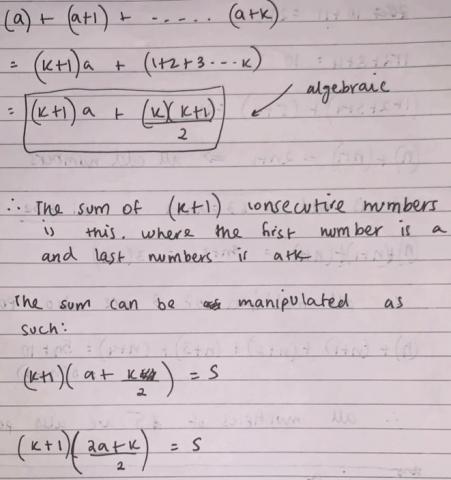 (a) + (a+1) + ...... (a+k)
= (k+1)a + (1+2+3...k)
= (k+1)a + (k)(k+1)/2
algebraic
∴ The sum of (k+1) consecutive numbers
is this. where the first number is a
and last numbers is a+k
The sum can be manipulated as
such:
(k+1)(a + k/2) = S
(k+1)(2a+k/2) = S